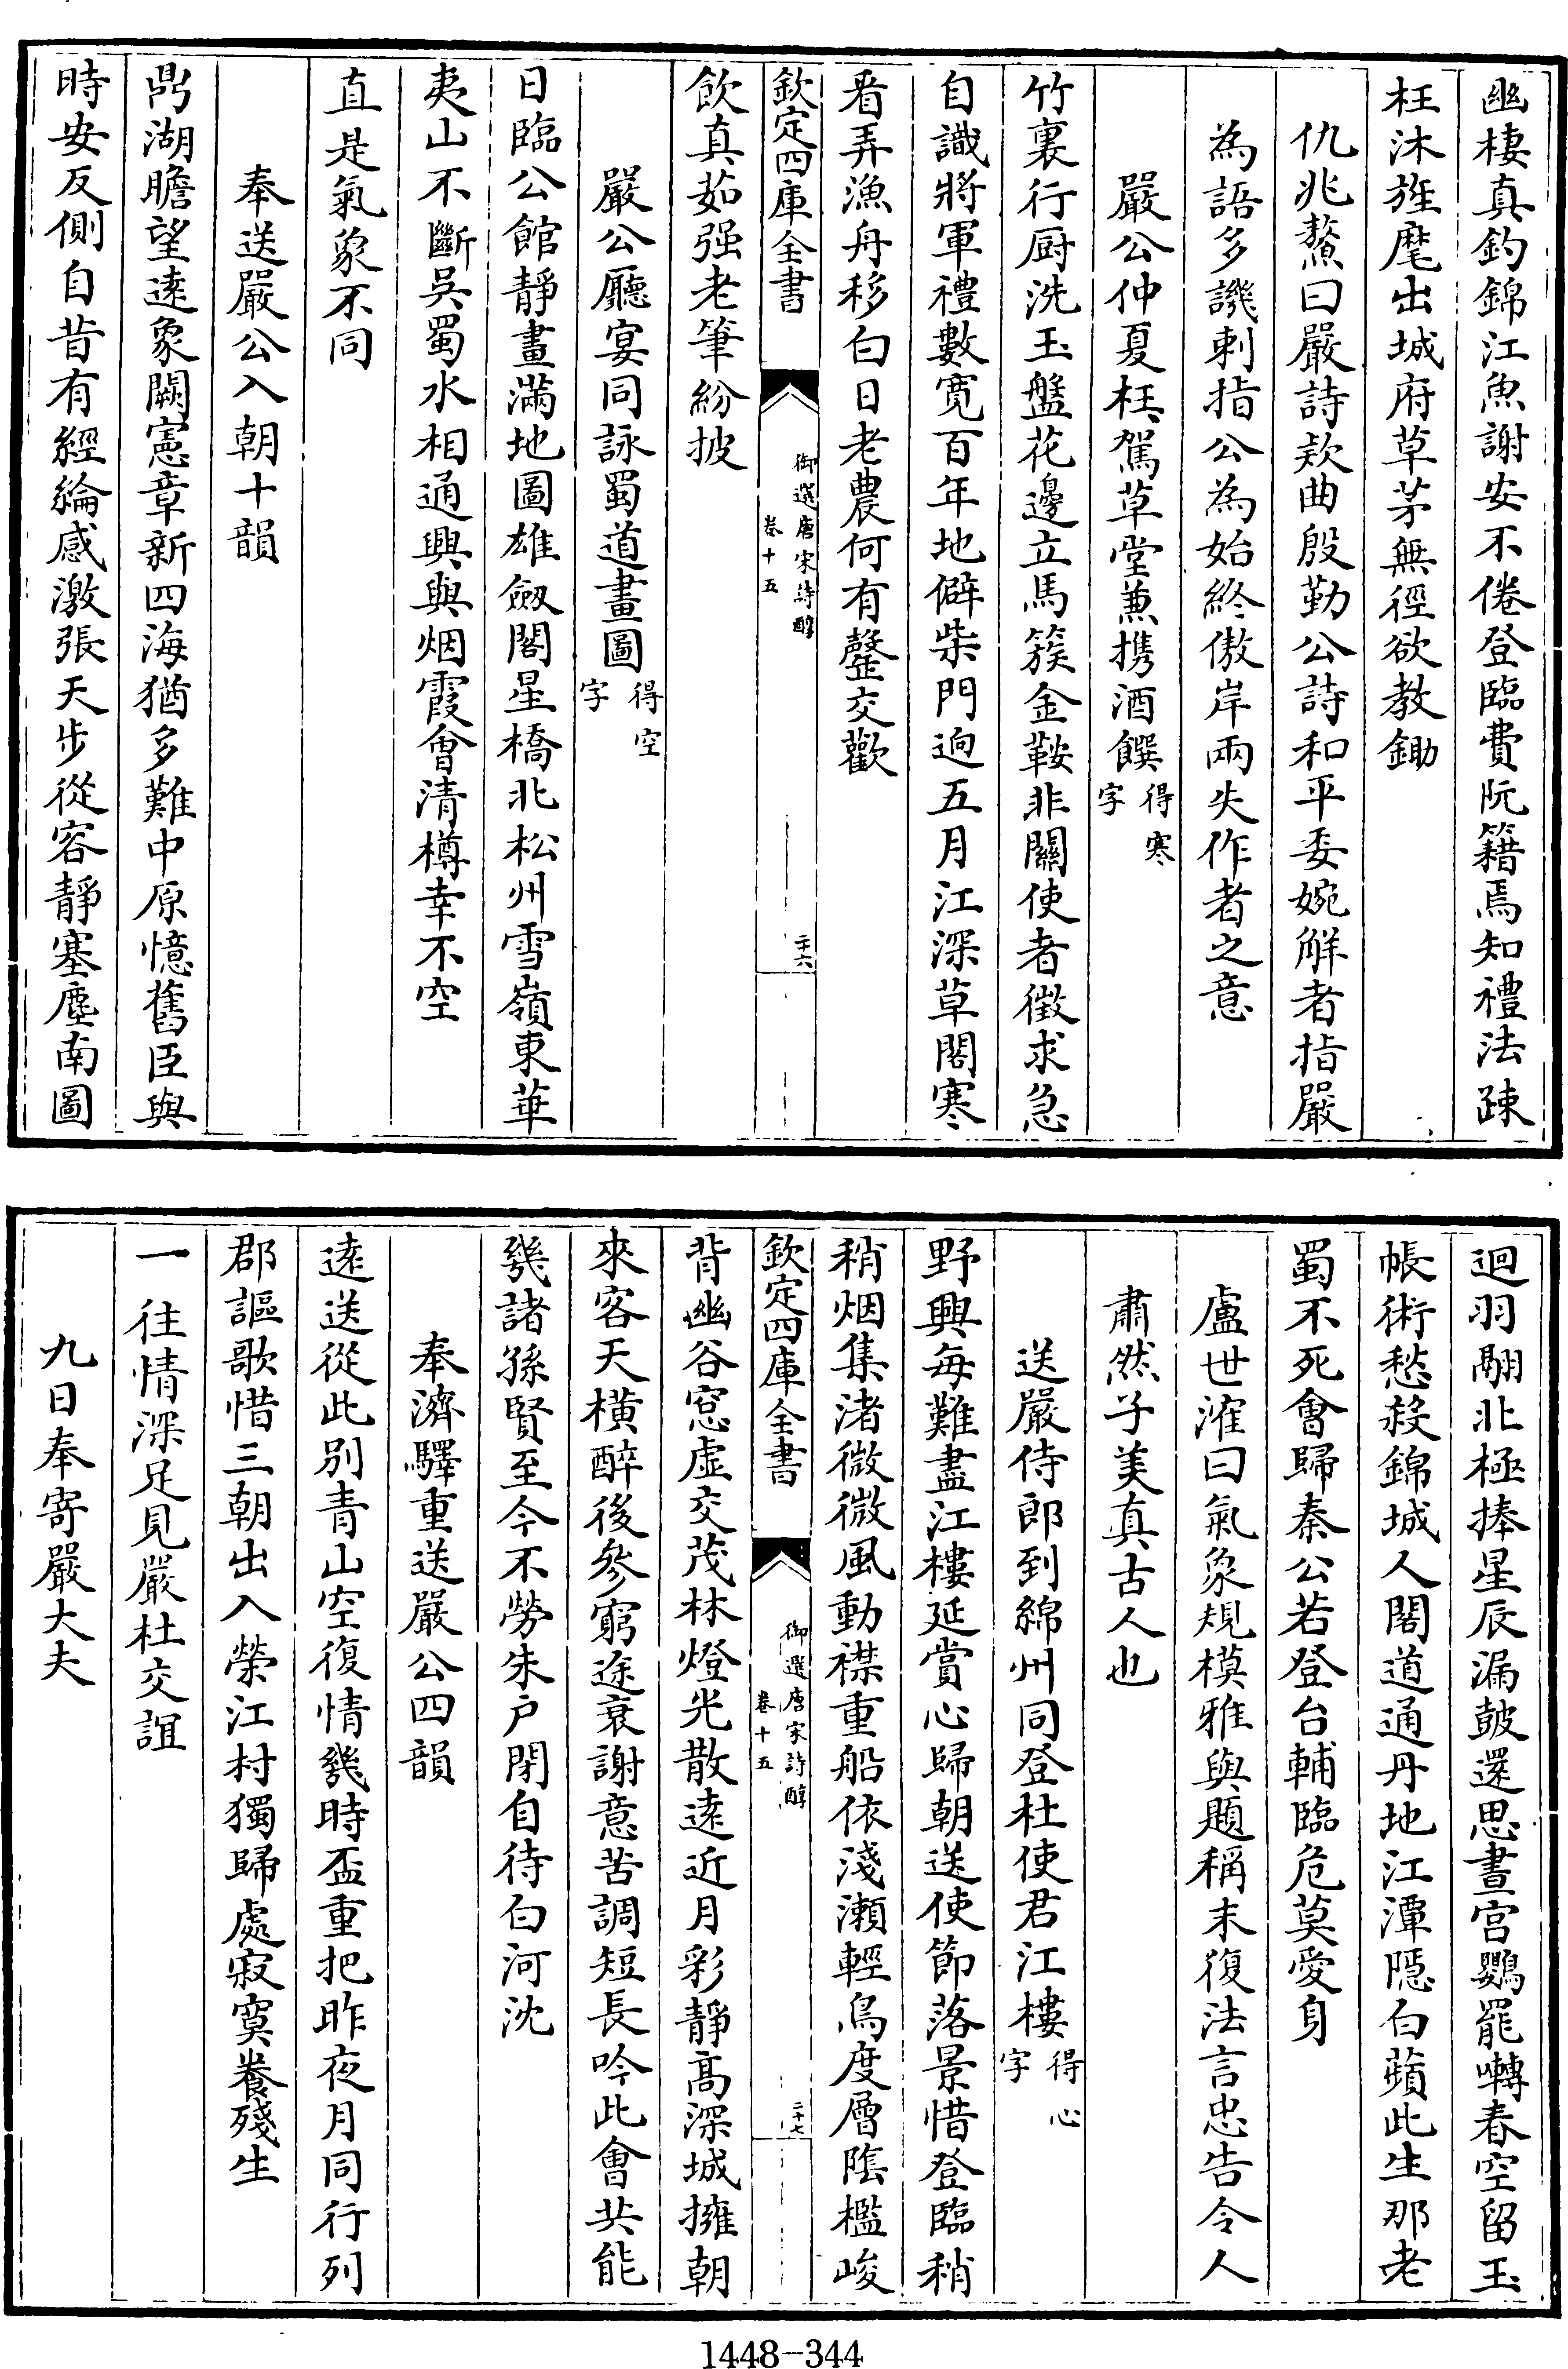 幽棲真釣錦江魚謝安不倦登臨費阮籍焉知禮法疎
枉沐旌麾出城府草茅無徑欲教鋤
仇兆鰲曰嚴詩欵曲殷勤公詩和平委婉解者指嚴
為語多譏刺指公為始終傲岸兩失作者之意
嚴公仲夏枉駕草堂兼携酒饌得寒字
竹裏行厨洗玉盤花邊立馬簇金鞍非關使者徵求急
自識將軍禮數寛百年地僻柴門迥五月江深草閣寒
看弄漁舟移白日老農何有罄交歡
欽定四庫全書
御選唐宋詩醇
卷十五
二十六
飲真茹强老筆紛披
嚴公廳宴同詠蜀道畫圖得空字
日臨公館靜畫滿地圖雄劔閣星橋北松州雪嶺東華
夷山不斷吳蜀水相通興與烟霞會清樽幸不空
直是氣象不同
奉送嚴公入朝十韻
鼎湖瞻望逺象闕憲章新四海猶多難中原憶舊臣與
時安反側自昔有經綸感激張天步從容靜塞塵南圖
迴羽翮北極捧星辰漏鼓還思晝宫鸎罷囀春空留玉
帳術愁殺錦城人閣道通丹地江潭隱白蘋此生那老
蜀不死會歸秦公若登台輔臨危莫愛身
盧世㴶曰氣象規模雅與題稱末復法言忠告令人
肅然子美真古人也
送嚴侍郎到綿州同登杜使君江樓得心字
野興每難盡江樓延賞心歸朝送使節落景惜登臨稍
稍烟集渚微微風動襟重船依淺瀬輕鳥度層隂檻峻
欽定四庫全書
御選唐宋詩醇
卷十五
二十七
背幽谷窓虚交茂林燈光散逺近月彩靜髙深城擁朝
來客天横醉後參窮途衰謝意苦調短長吟此會共能
幾諸孫賢至今不勞朱户閉自待白河沈
奉濟驛重送嚴公四韻
逺送從此別青山空復情幾時盃重把昨夜月同行列
郡謳歌惜三朝出入榮江村獨歸處寂寞養殘生
一往情深足見嚴杜交誼
九日奉寄嚴大夫
1448-344